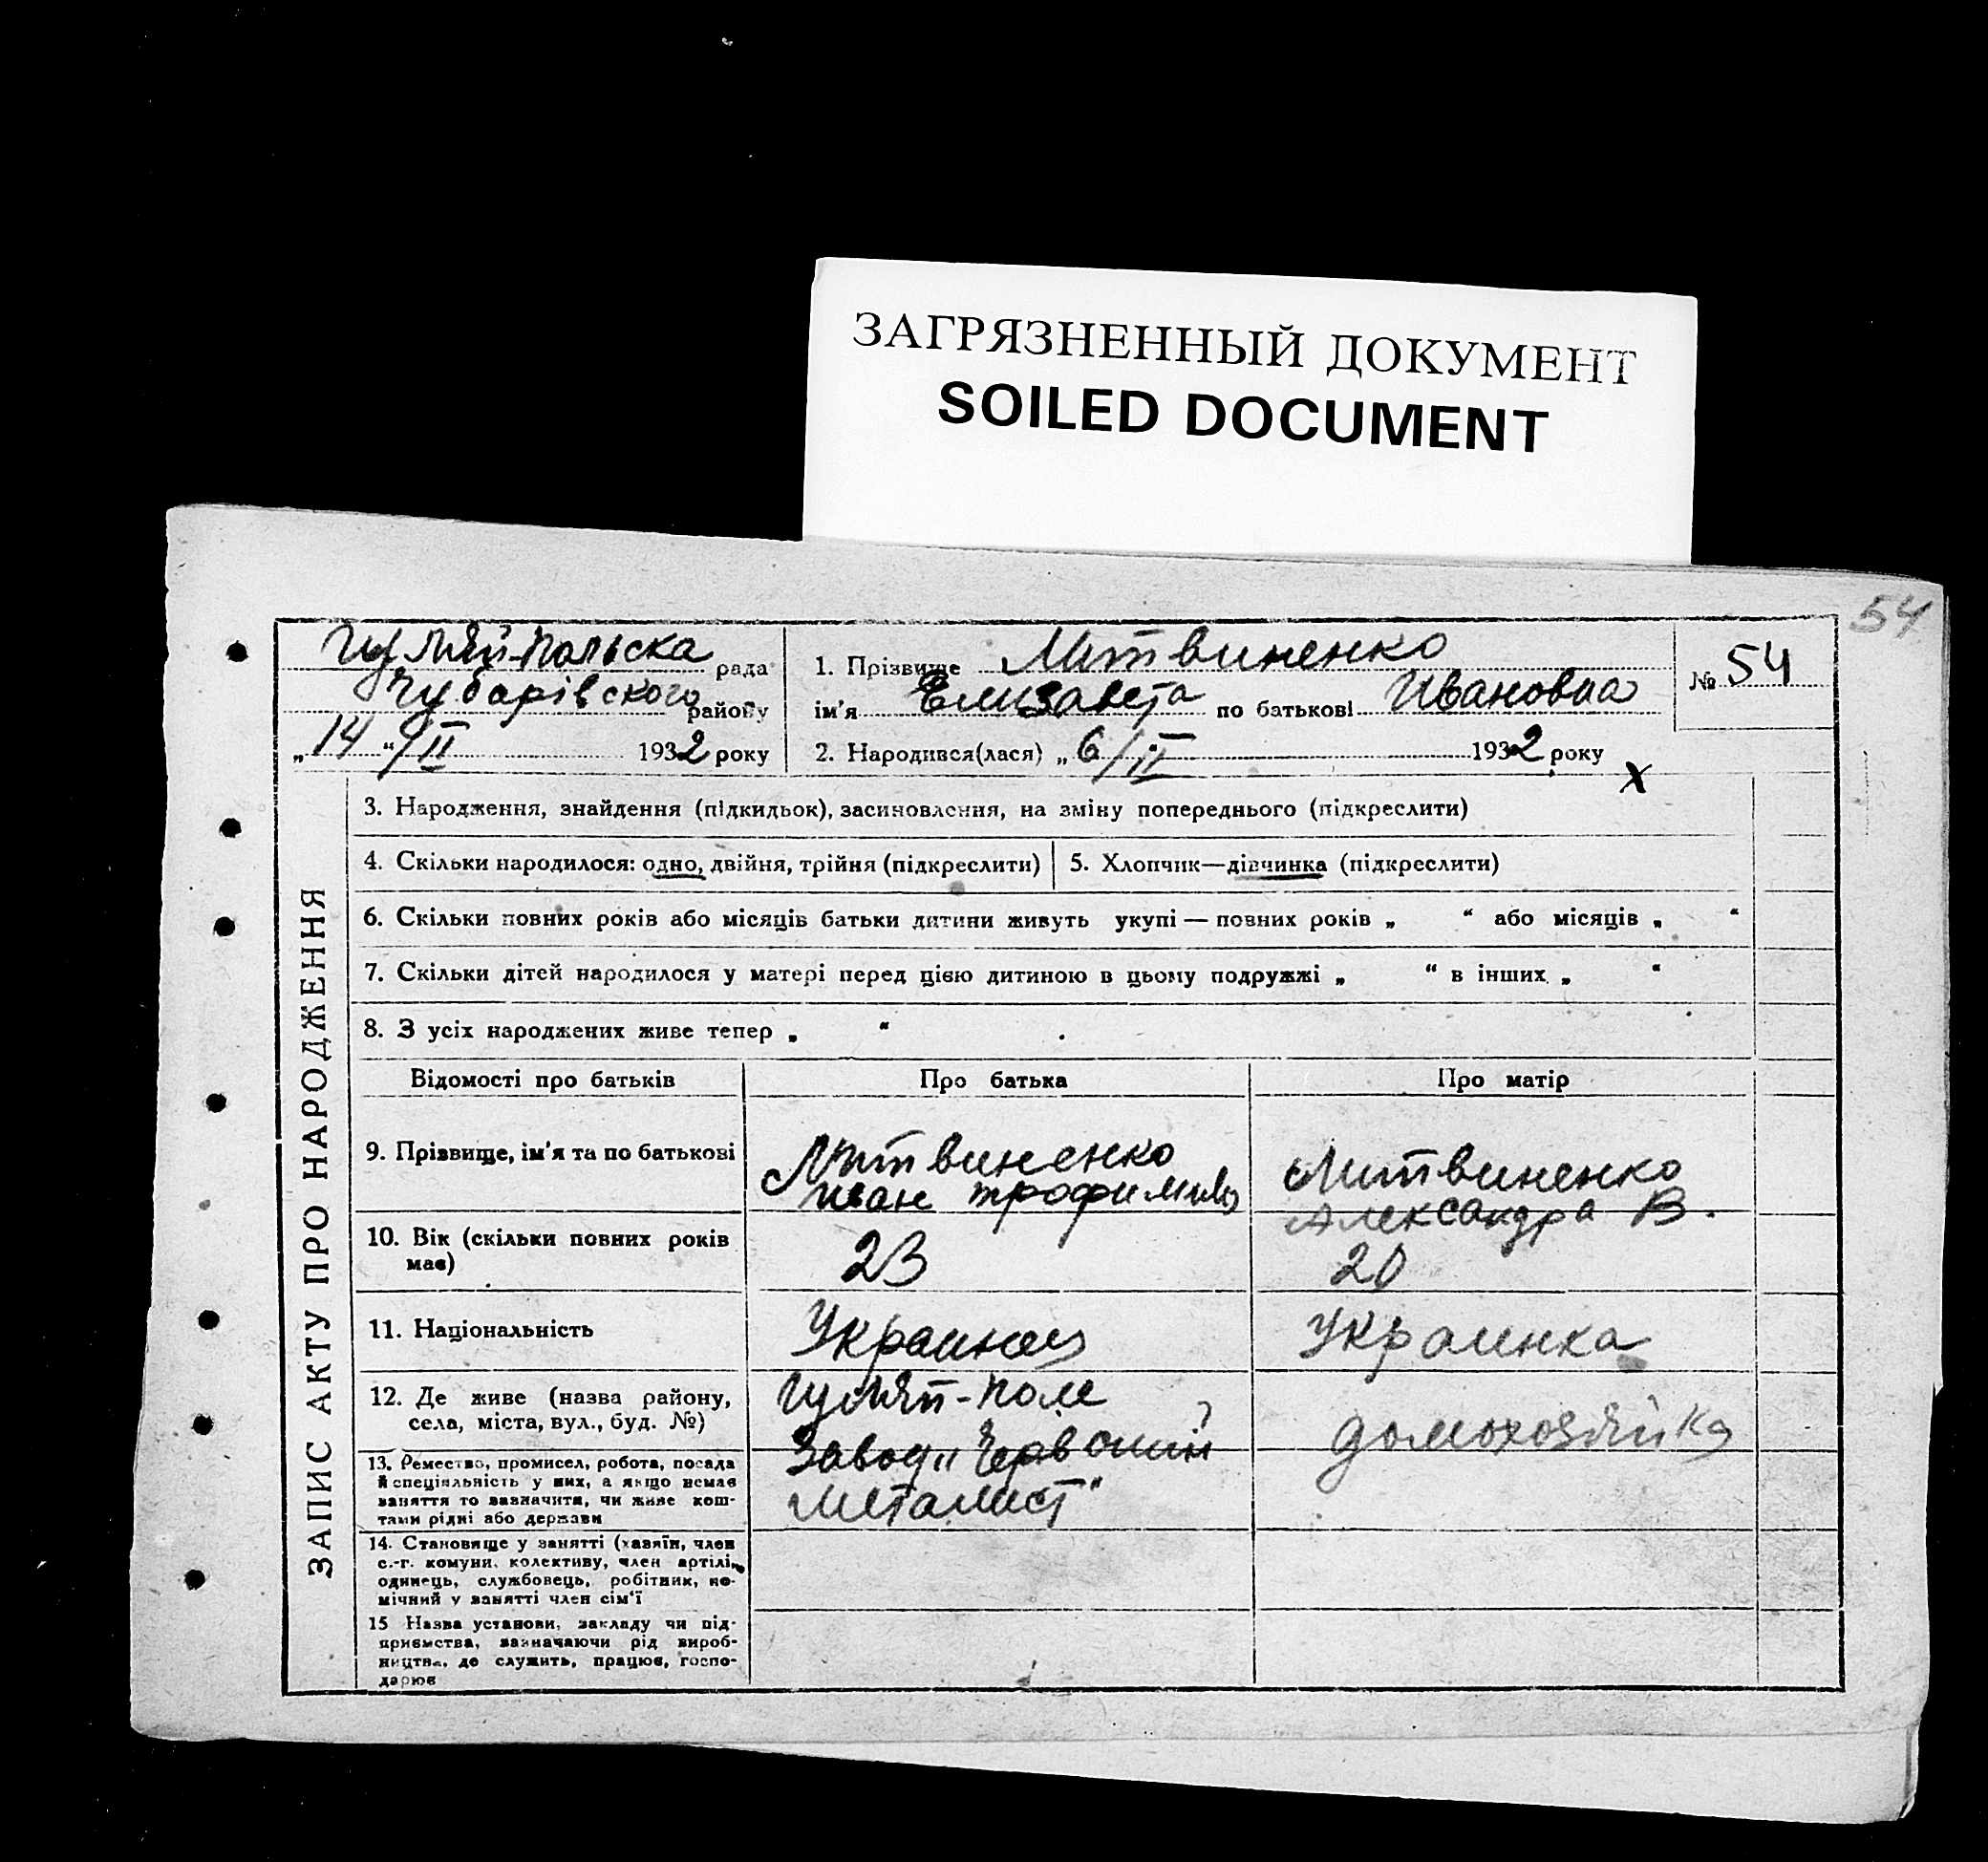 ЗАГРЯЗНЕННЫЙ ДОКУМЕНТ
SOILED DOCUMENT
54
Гуляй-Польска рада
Чубарівського району
„14“/II 1932 року
1. Прізвище Литвиненко
ім'я Елизавета по батькові Ивановна
2. Народився(лася) „6/II 1932 року
№ 54
х
ЗАПИС АКТУ ПРО НАРОДЖЕННЯ
3. Народження, знайдення (підкидьок), засиновлення, на зміну попереднього (підкреслити)
4. Скільки народилося: одно, двійня, трійня (підкреслити) 5. Хлопчик—дівчинка (підкреслити)
6. Скільки повних років або місяців батьки дитини живуть укупі — повних років „ “ або місяців „ “
7. Скільки дітей народилося у матері перед цією дитиною в цьому подружжі „ “ в інших „ “
8. З усіх народжених живе тепер „ “
Відомості про батьків Про батька Про матір
9. Прізвище, ім'я та по батькові
Литвиненко
Иван Трофимив
Литвиненко
Александра В.
10. Вік (скільки повних років
має)
23
20
11. Національність
Украинец
Украинка
12. Де живе (назва району,
села, міста, вул., буд. №)
Гуляй-Поле
13. Ремество, промисел, робота, посада
й спеціяльність у них, а якщо немає
заняття то зазначити, чи живе кош-
тами рідні або держави
Завод „Червоний
Металист“
домохозяйка
14. Становище у занятті (хазяїн, член
с.-г. комуни, колективу, член артілі,
одинець, службовець, робітник, по-
мічний у занятті член сім'ї
15 Назва установи, закладу чи під-
приємства, зазначаючи рід вироб-
ництва, де служить, працює, госпо-
дарює